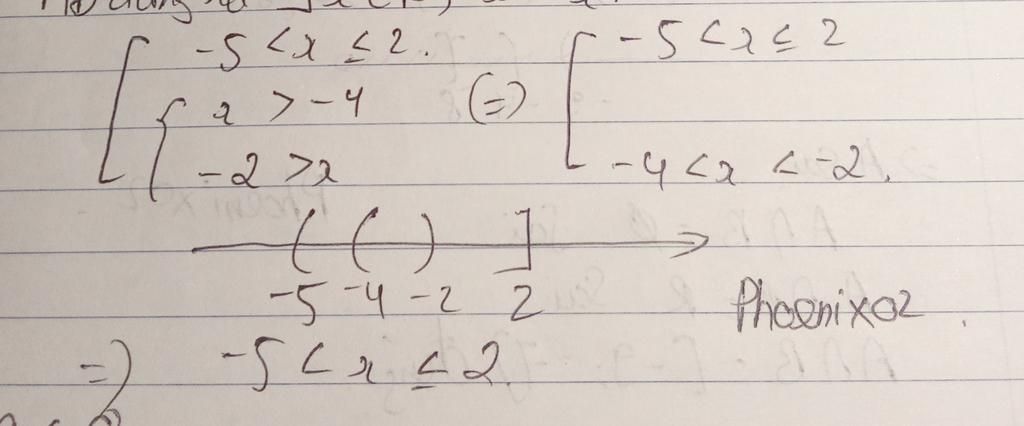 [ -5 < x ≤ 2. (=) [ -5 < x ≤ 2
{ x > -4
-2 > x -4 < x < -2.
-5 -4 -2 2
Phoenix02.
=) -5 < x ≤ 2